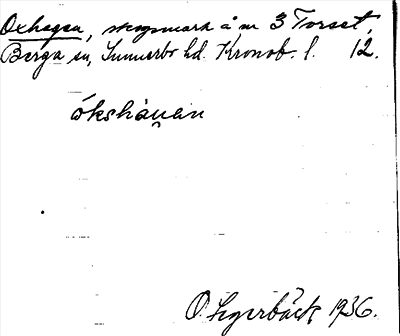 Oxhagen, skogsmark å nr 3 Torset,
Berga sn, Sunnerbo hd. Kronob. l. 12.
ókshàu̯an
O Segerbäck 1936.